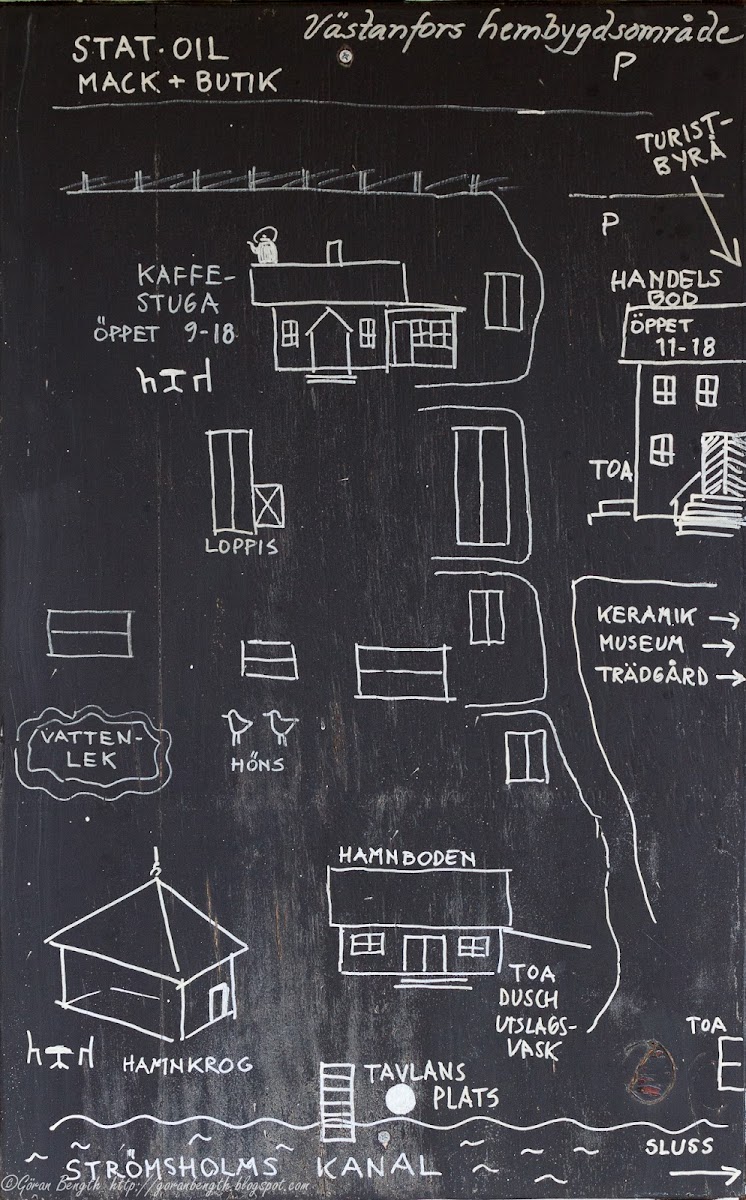 Västanfors hembygdsområde
P
STAT·OIL
MACK + BUTIK
TURIST-
BYRÅ
P
KAFFE-
STUGA
ÖPPET 9-18
HANDELS
BOD
ÖPPET
11-18
TOA
LOPPIS
KERAMIK
MUSEUM
TRÄDGÅRD
VATTEN-
LEK
HÖNS
HAMNBODEN
TOA
DUSCH
UTSLAGS-
VASK
HAMNKROG
TOA
TAVLANS
PLATS
SLUSS
STRÖMSHOLMS KANAL
©Göran Bength http://goranbength.blogspot.com